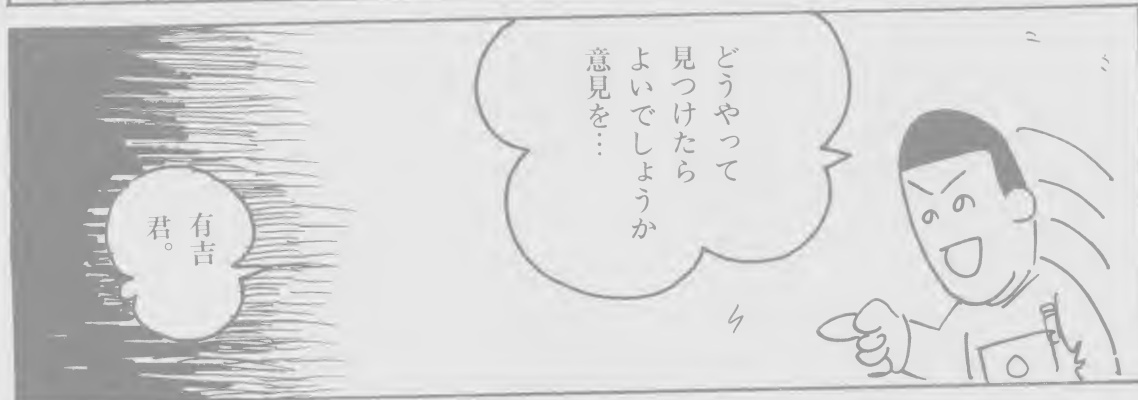 どうやって
見つけたら
よいでしょうか
意見を…
有吉
君。